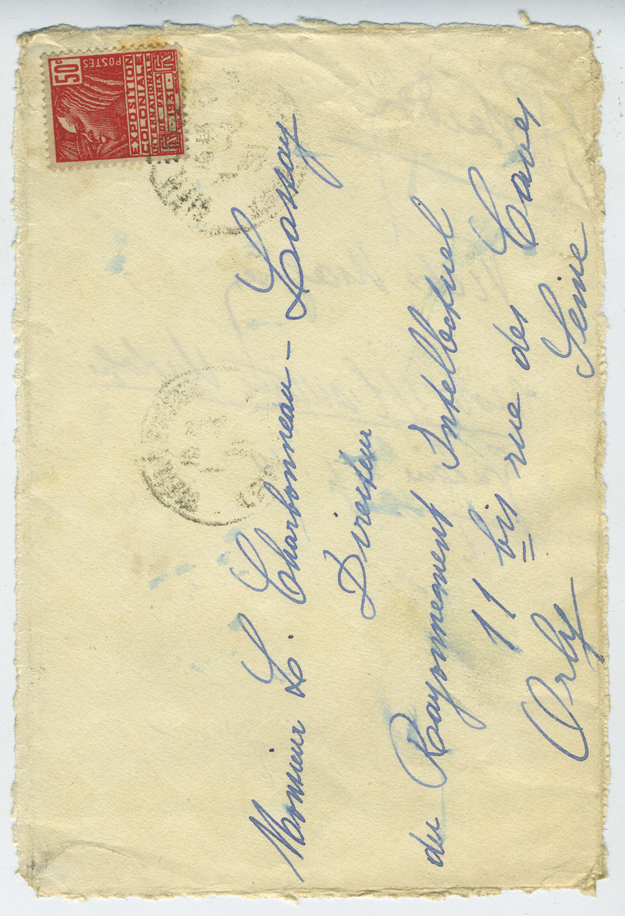 50c
POSTES
EXPOSITION
COLONIALE
INTERNATIONALE
PARIS
1931
Monsieur L. Charbonneau - Lassay
Directeur
du Rayonnement Intellectuel
11 bis rue des Caves
Orly Seine